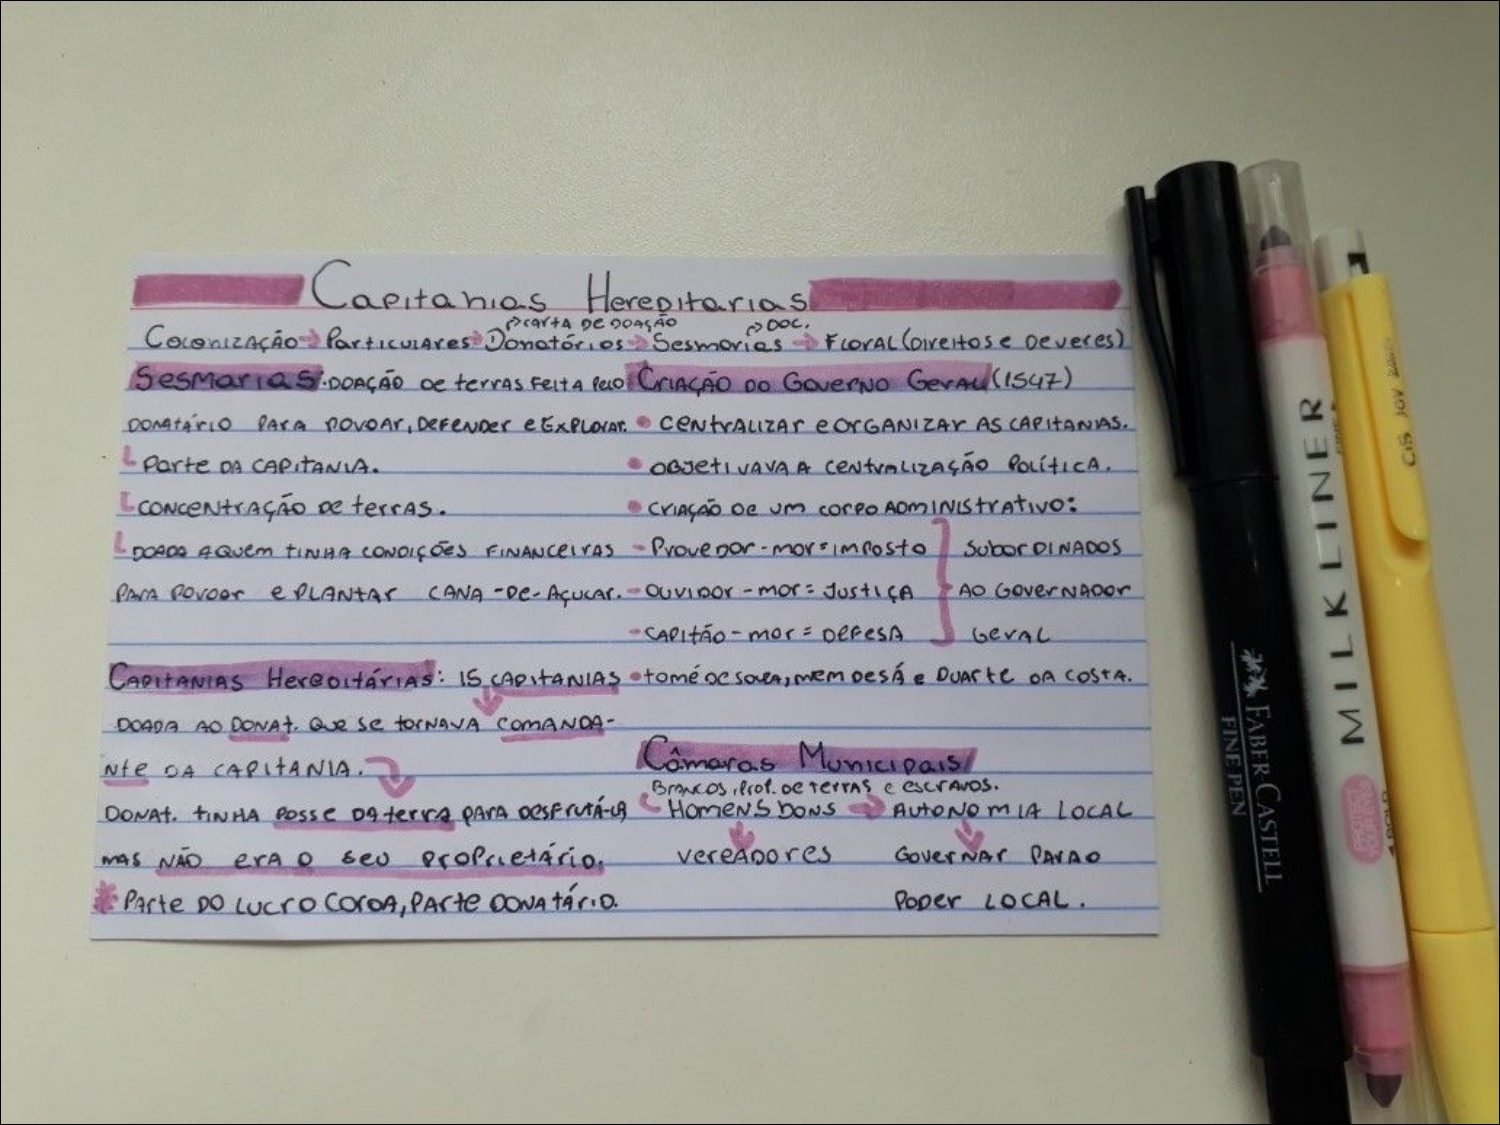 Capitanias Hereditarias
carta de doação
doc.
Colonização → Particulares → Donatórios → Sesmarias → Floral (Direitos e Deveres)
Sesmarias: doação de terras feita pelo
donatário para povoar, defender e explorar.
Parte da capitania.
Concentração de terras.
Doada a quem tinha condições financeiras
para povoar e plantar cana-de-açucar.
Capitanias Hereditárias: 15 capitanias
doada ao donat. que se tornava comanda-
nte da capitania.
Donat. tinha posse da terra para desfrutá-la
mas não era o seu proprietário.
* Parte do lucro coroa, parte donatário.
Criação do Governo Geral (1547)
• Centralizar e organizar as capitanias.
• Objetivava a centralização política.
• Criação de um corpo administrativo:
- Provedor-mor = imposto
- Ouvidor-mor = Justiça
- Capitão-mor = Defesa
Subordinados
ao Governador
Geral
• Tomé de Souza, Mem de Sá e Duarte da Costa.
Câmaras Municipais
Brancos, prof. de terras e escravos.
Homens bons → Autonomia local
vereadores
Governar para o
poder local.
FABER-CASTELL
FINE PEN
MILKLINER
CiS JOY